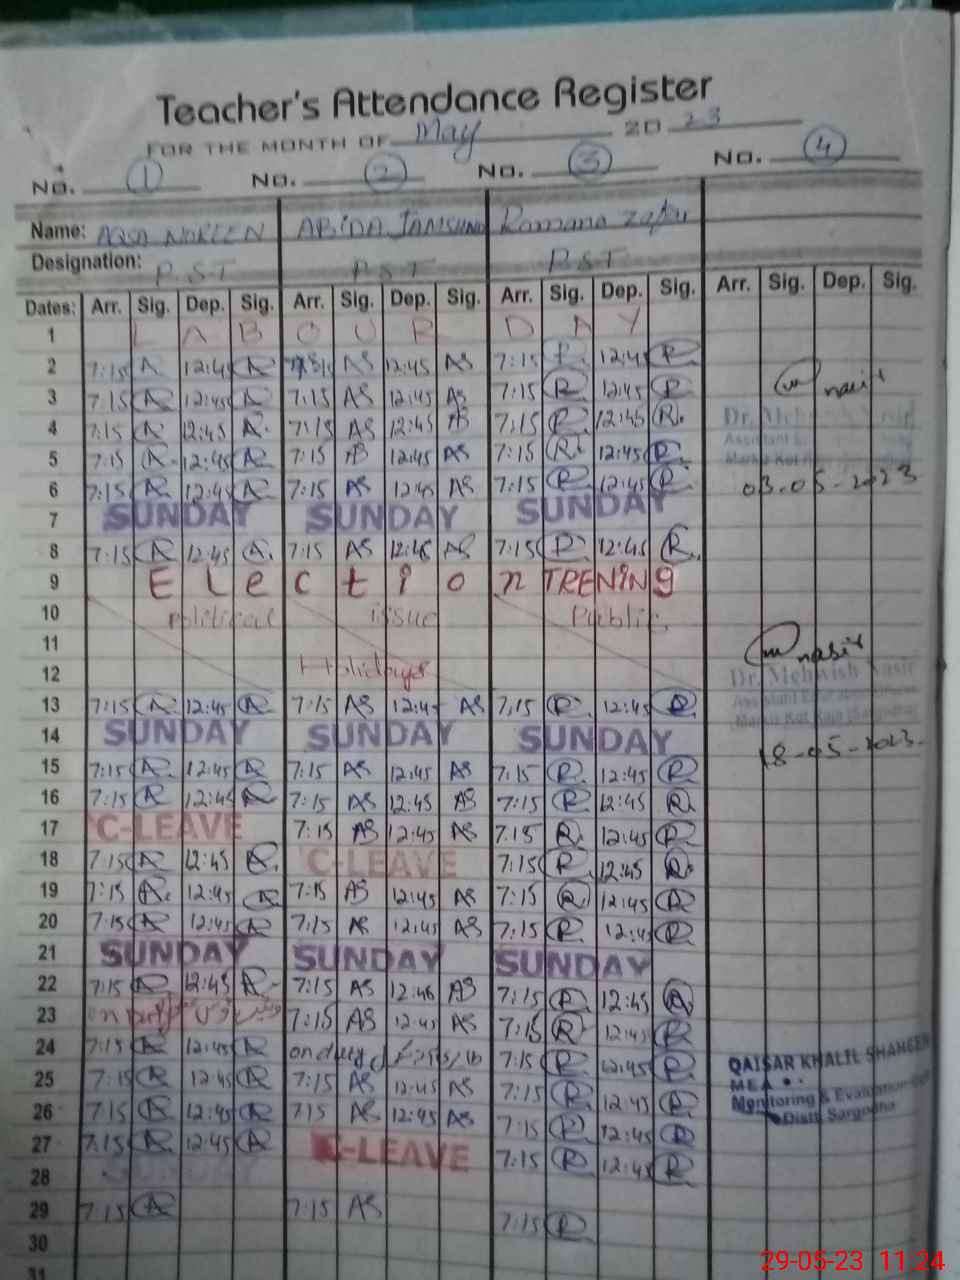 Teacher's Attendance Register
FOR THE MONTH OF May 2023
No. 1 No. 2 No. 3 No. 4
Name: AQSA NOREEN ABIDA Romana Zafar
Designation: P.S.T P.S.T P.S.T
Dates: Arr. Sig. Dep. Sig. Arr. Sig. Dep. Sig. Arr. Sig. Dep. Sig. Arr. Sig. Dep. Sig.
1 LABOUR DAY
2 7:15 A 12:45 A AS 12:45 AS 7:15 R 12:45 R
3 7:15 A 12:45 A 7:15 AS 12:45 AS 7:15 R 12:45 R nasir
4 7:15 A 12:45 A 7:15 AS 12:45 AS 7:15 R 12:45 R Dr. Mehwish Nasir
5 7:15 A 12:45 A 7:15 AS 12:45 AS 7:15 R 12:45 R
6 7:15 A 12:45 A 7:15 AS 12:45 AS 7:15 R 12:45 R 03-05-2023
7 SUNDAY SUNDAY SUNDAY
8 7:15 A 12:45 A 7:15 AS 12:45 AS 7:15 R 12:45 R
9 Election TRENING
10 political issue Public
11
12 Holidays nasir
Dr. Mehwish Nasir
13 7:15 A 12:45 A 7:15 AS 12:45 AS 7:15 R 12:45 R
14 SUNDAY SUNDAY SUNDAY 18-05-2023
15 7:15 A 12:45 A 7:15 AS 12:45 AS 7:15 R 12:45 R
16 7:15 A 12:45 A 7:15 AS 12:45 AS 7:15 R 12:45 R
17 C-LEAVE 7:15 AS 12:45 AS 7:15 R 12:45 R
18 7:15 A 12:45 A C-LEAVE 7:15 R 12:45 R
19 7:15 A 12:45 A 7:15 AS 12:45 AS 7:15 R 12:45 R
20 7:15 A 12:45 A 7:15 AS 12:45 AS 7:15 R 12:45 R
21 SUNDAY SUNDAY SUNDAY
22 7:15 A 12:45 A 7:15 AS 12:46 AS 7:15 R 12:45 R
23 on 7:15 AS 12:45 AS 7:15 R 12:45 R
24 7:15 A 12:45 A on duty 7:15 R 12:45 R
QAISAR KHALIL SHAHEEN
25 7:15 A 12:45 A 7:15 AS 12:45 AS 7:15 R 12:45 R
MEA
Monitoring & Evaluation
26 7:15 A 12:45 A 715 AS 12:45 AS 7:15 R 12:45 R
Distt. Sargodha
27 7:15 A 12:45 A C-LEAVE 7:15 R 12:45 R
28 SUNDAY
29 7:15 A 7:15 AS 7:15 R
30
31
29-05-23 11:24